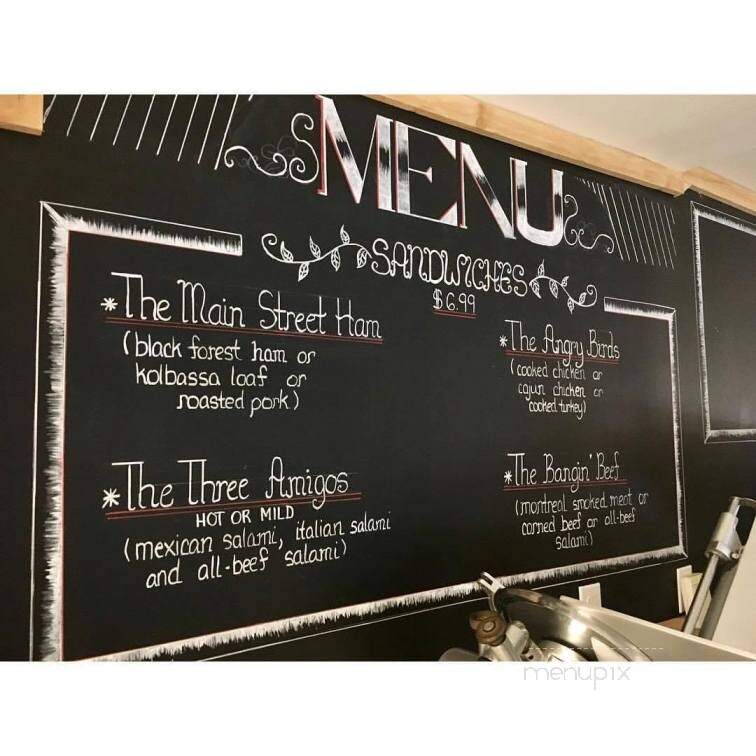 MENU
SANDWICHES
$6.99
*The Main Street Ham
(black forest ham or
kolbassa loaf or
roasted pork)
*The Angry Birds
(cooked chicken or
cajun chicken or
cooked turkey)
*The Three Amigos
HOT OR MILD
(mexican salami, italian salami
and all-beef salami)
*The Bangin' Beef
(montreal smoked meat or
corned beef or all-beef
salami)
menupix